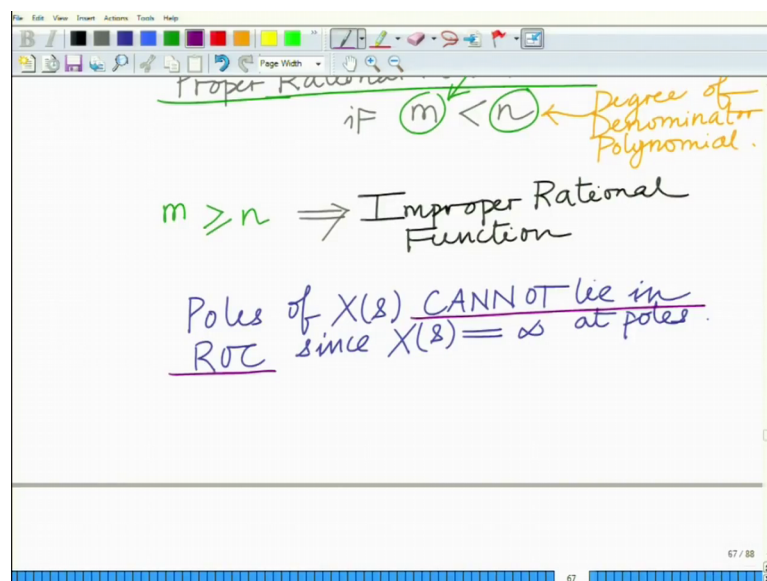 File Edit View Insert Actions Tools Help
B I
Page Width
Proper Rational
if m < n
Degree of
Denominator
Polynomial.
m ≥ n ⇒ Improper Rational
Function
Poles of X(s) CANNOT lie in
ROC since X(s) = ∞ at poles.
67 / 88
67